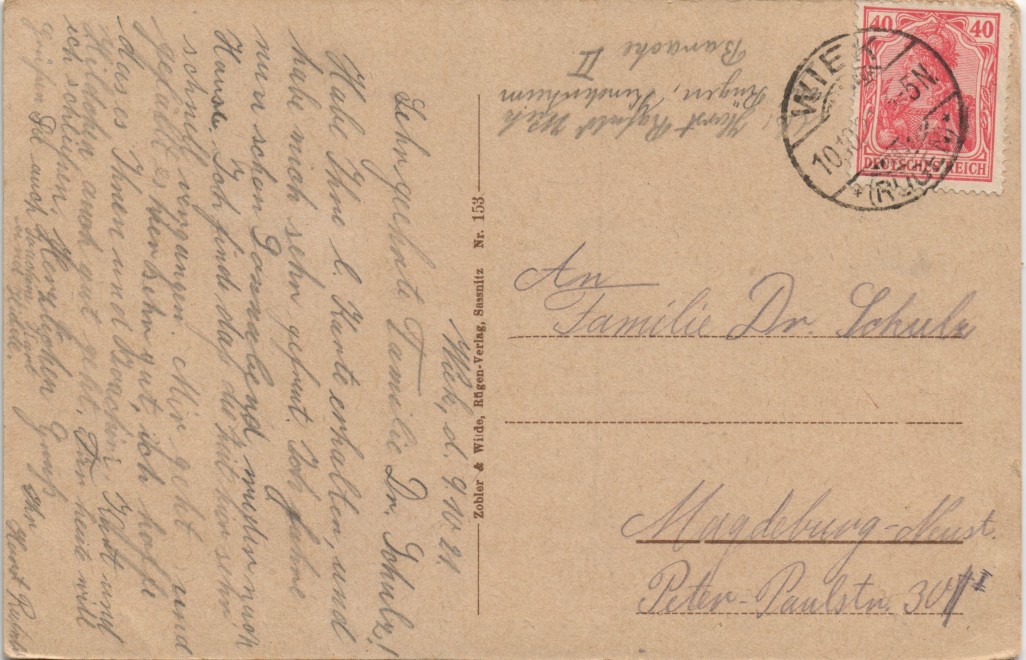 Wiek, d. 9.10.21.
Sehr geehrte Familie Dr. Schulz!
Habe Ihre l. Karte erhalten, und
habe mich sehr gefreut. Ich fahre
nun schon Sonnabend wieder nach
Hause. Ich finde das die Zeit hier sehr
schnell vergangen. Mir geht und
gefällt es hier sehr gut, ich hoffe
das es Ihnen und Kurt und
Hildchen auch gut geht. Für heute will
ich schließen. Herzlichen Gruß
Ihr Horst
grüßen Sie auch
und
Zobler & Wilde, Rügen-Verlag, Sassnitz Nr. 153
Horst Wiek
Rügen, Kinderheim
Baracke II
40 40
DEUTSCHES REICH
WIEK
10.10. 4-5N.
*(RÜGEN)
An
Familie Dr. Schulz
Magdeburg-Neust.
Peter-Paulstr. 30